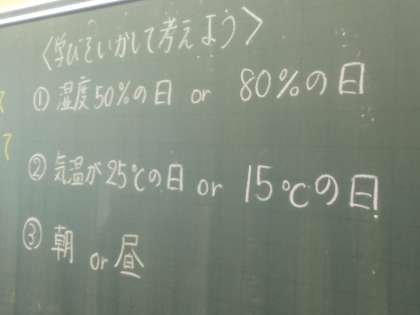 〈学びをいかして考えよう〉
① 湿度50%の日 or 80%の日
② 気温が25℃の日 or 15℃の日
③ 朝 or 昼
て